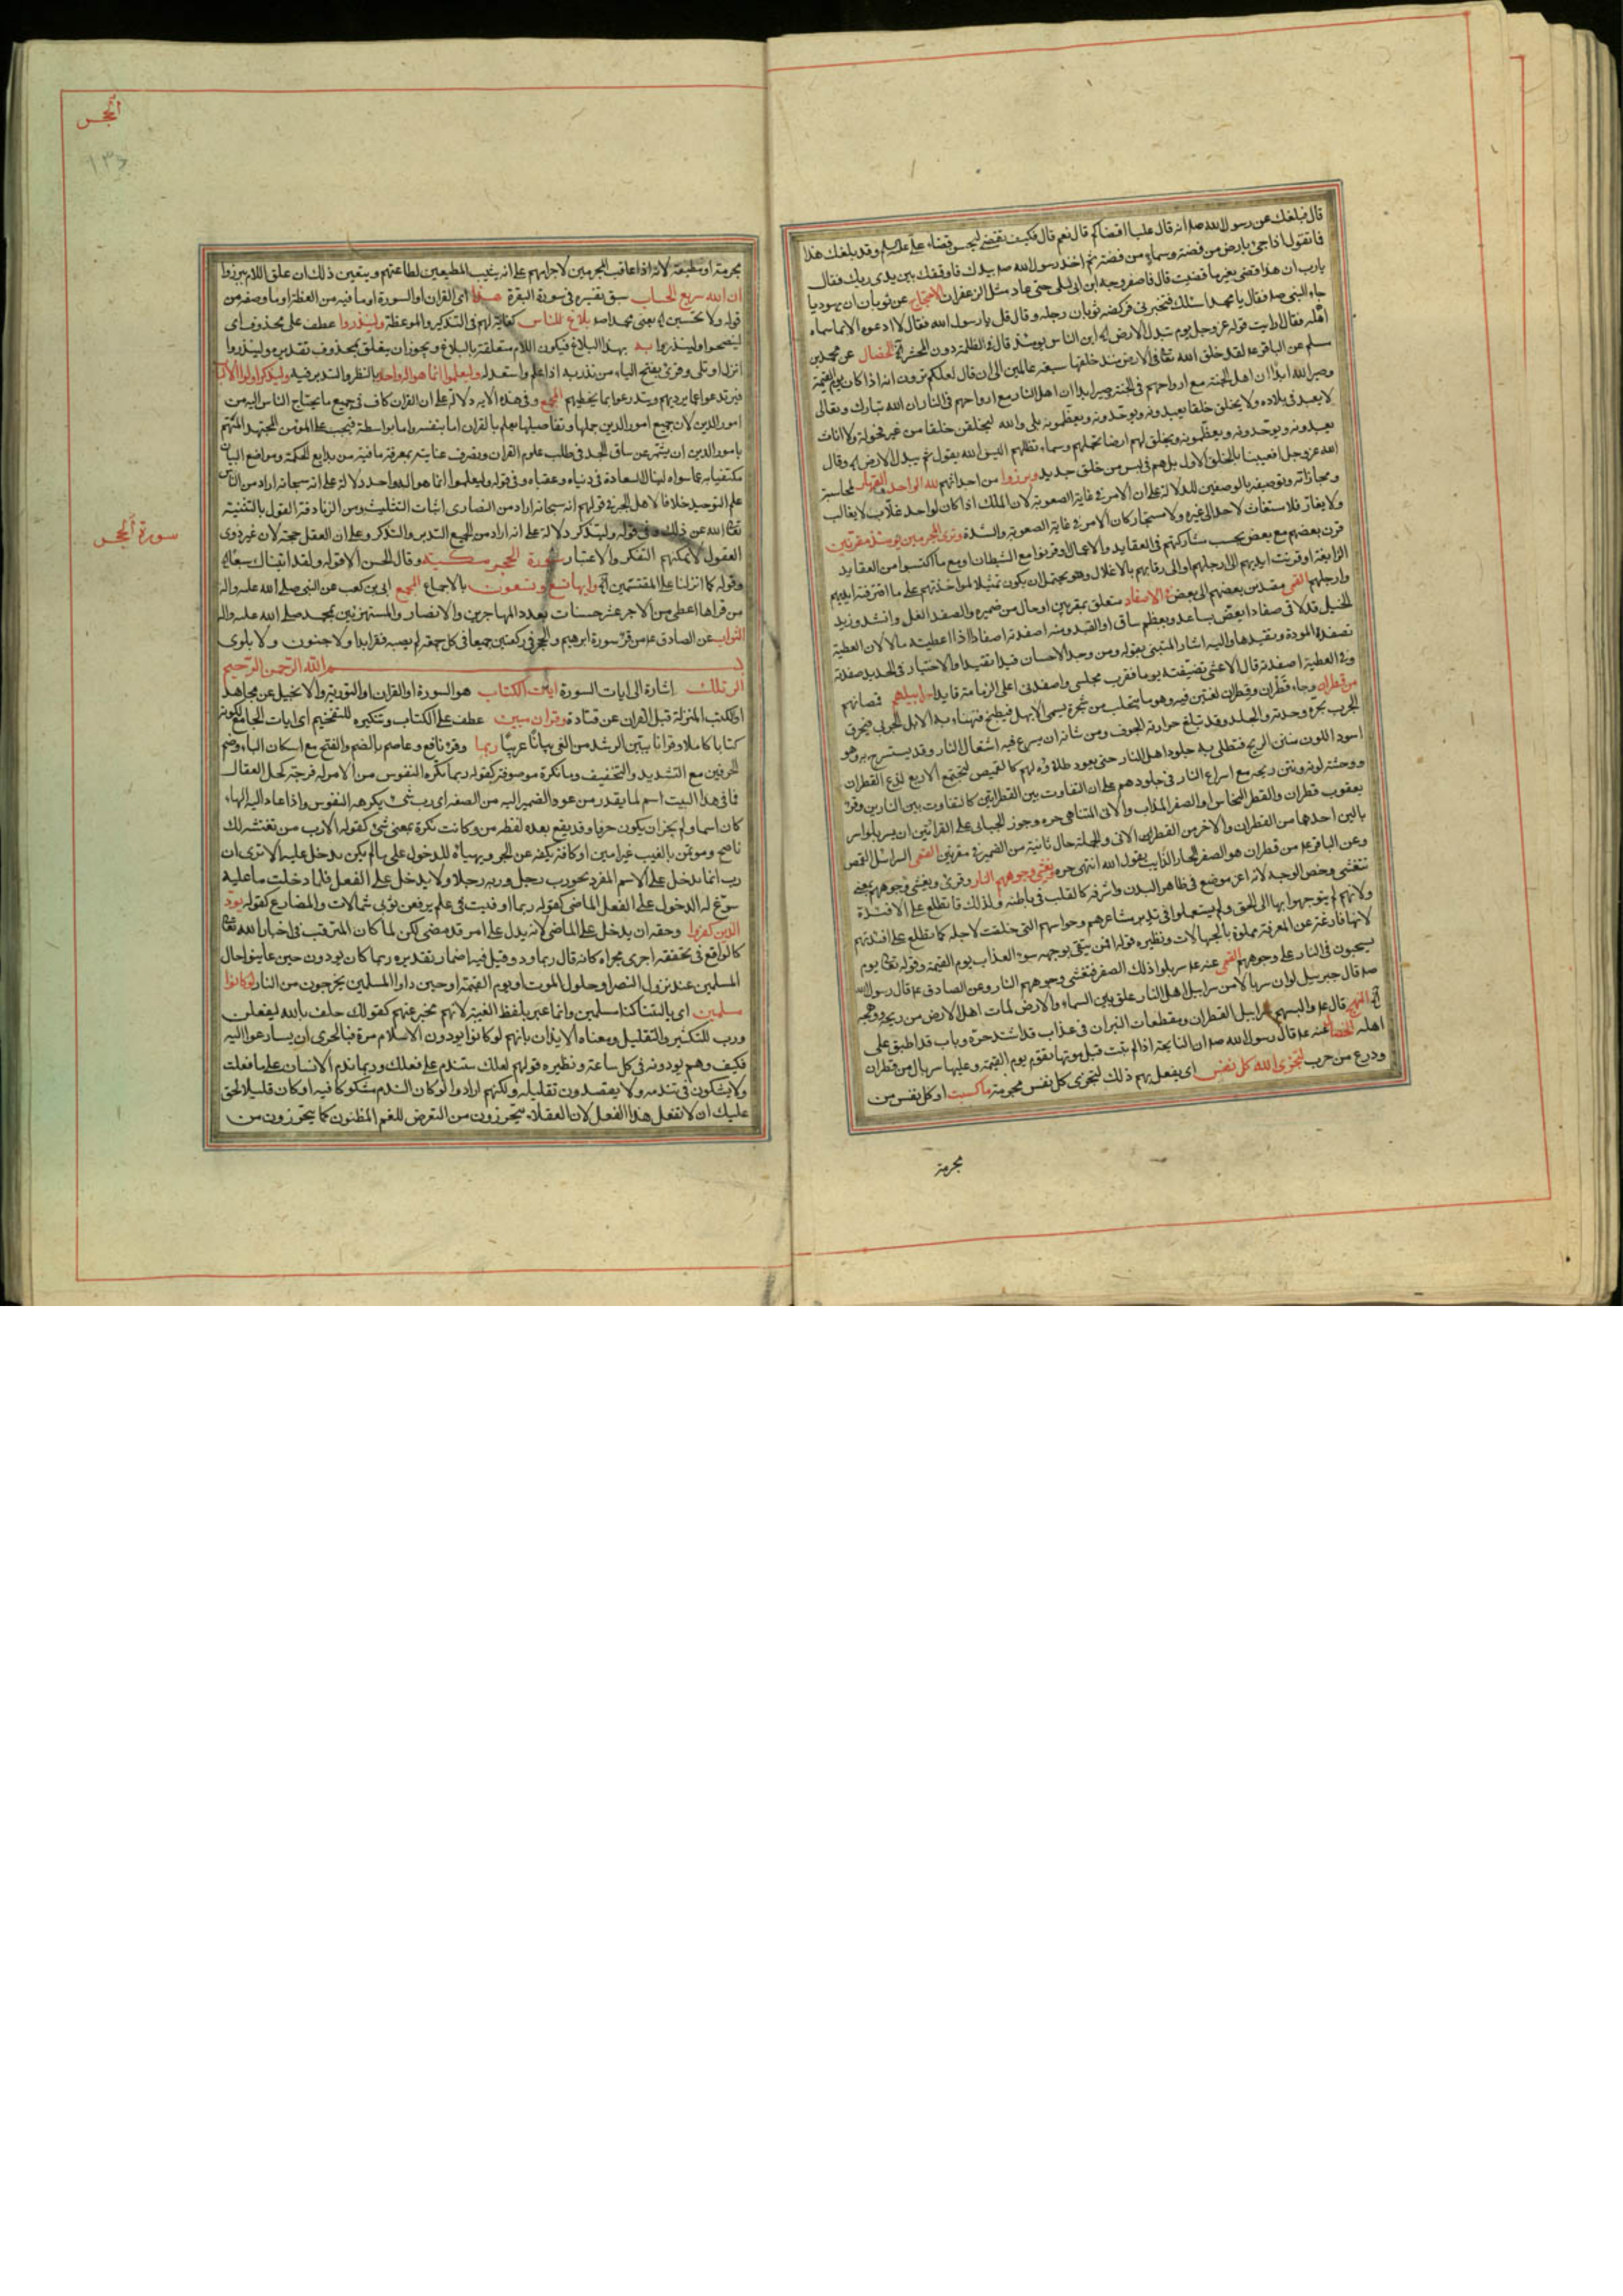 قال فبلغك عن رسول الله صم انه قال علي اقضاكم قال نعم قال فكيف تقضي بغير قضاء علي عليه السلم وقد بلغك هذا
فما تقول اذا جئ بارض من فضة وسماء من فضة ثم اخذ رسول الله صم بيدك فاوقفك بين يدي ربك فقال
يارب ان هذا قضى بغير ما قضيت قال فاصفر وجه ابن ابي ليلى حتى عاد مثل الزعفران الاحتجاج عن ثوبان ان يهوديا
جاء النبي صم فقال يا محمد اسئلك فتخبرني فركضه ثوبان برجله وقال قل يا رسول الله فقال لا ادعوه الا بما سماه
اهله فقال ارايت قوله عز وجل يوم تبدل الارض اين الناس يومئذ قال في الظلمة دون المحشر الخصال عن محمد بن
مسلم عن الباقر عم لقد خلق الله تعا في الارض منذ خلقها سبعة عالمين الى ان قال لعلكم ترون انه اذا كان يوم القيمة
وصير الله ابدان اهل الجنة مع ارواحهم في الجنة وصير ابدان اهل النار مع ارواحهم في النار ان الله تبارك وتعالى
لا يعبد في بلاده ولا يخلق خلقا يعبدونه ويوحدونه ويعظمونه بلى والله ليخلقن خلقا من غير فحولة ولا اناث
يعبدونه ويوحدونه ويعظمونه ويخلق لهم ارضا تحملهم وسماء تظلهم اليس الله يقول يوم تبدل الارض وقال
الله عز وجل افعيينا بالخلق الاول بل هم في لبس من خلق جديد وبرزوا من اجداثهم لله الواحد القهار لمحاسبته
ومجازاته وتوصيفه بالوصفين للدلالة على ان الامر في غاية الصعوبة لان الملك اذا كان لواحد غلاب لا يغالب
ولا يغاز فلا مستغاث لاحد الى غيره ولا مستجار كان الامر في غاية الصعوبة والشدة وترى المجرمين يومئذ مقرنين
قرن بعضهم مع بعض بحسب مشاركتهم في العقايد والاعمال او قرنوا مع الشيطان او مع ما اكتسبوا من العقايد
الزايغة او قرنت ايديهم الى ارجلهم او الى رقابهم بالاغلال وهو يحتمل ان يكون تمثيلا لمواخذتهم على ما اقترفته ايديهم
وارجلهم القمي مقيدين بعضهم الى بعض في الاصفاد متعلق بمقرنين او حال من ضميره والصفد الغل وانشد وزيد
الخيل قد لاقى صفادا يعض بساعد وبعظم ساق او القيد ومنه اصفدته اصفادا اذا اعطيته مالا لان العطية
تصفد المودة وتقيدها واليه اشار المتنبي بقوله ومن وجد الاحسان قيدا تقيدا والاختيار في الحديد صفدته
وفي العطية اصفدته قال الاعشى تضيفته يوما فقرب مجلسي واصفدني على الزمانة قايدا سرابيلهم قمصانهم
من قطران وجاء قطران وقطران لغتين فيه وهو ما يتحلب من شجرة يسمى الابهل فيطبخ فتهنأ به الابل الجربى فيحرق
الجرب بحره وحدته والجلد وقد تبلغ حرارته الجوف ومن شانه ان يسرع فيه اشتعال النار وقد يستسرج به وهو
اسود اللون منتن الريح فتطلى به جلود اهل النار حتى يعود طلاؤه لهم كالقميص لتجتمع الاربع لذع القطران
ووحشة لونه ونتن ريحه مع اسراع النار في جلودهم على ان التفاوت بين القطرانين كالتفاوت بين النارين وقرء
يعقوب قطرآن والقطر النحاس او الصفر المذاب والآن المتناهي حره وجوز الجبائي على القرائتين ان يسربلوا سر
بالين احدهما من القطران والاخر من القطر الآن والجملة حال ثانية من الضمير في مقرنين القمي السرابيل القمص
وعن الباقر عم من قطران هو الصفر الحار الذايب يقول الله انتهى حره وتغشى وجوههم النار وقرئ وتغشى وجوههم بمعنى
تتغشى وخص الوجه لانه اعز موضع في ظاهر البدن واشرفه كالقلب في باطنه ولذلك قا تطلع على الافئدة
ولانهم لم يتوجهوا بها الى الحق ولم يستعملوا في تدبره مشاعرهم وحواسهم التي خلقت لاجله كما تطلع على افئدتهم
لانها فارغة عن المعرفة مملوة بالجهالات ونظيره قوله افمن يتقي بوجهه سوء العذاب يوم القيمة وقوله تعا يوم
يسحبون في النار على وجوههم القمي عنه عم سربلوا ذلك الصفر فتغشى وجوههم النار وعن الصادق عم قال رسول الله
صم قال جبرئيل لو ان سربالا من سرابيل اهل النار علق بين السماء والارض لمات اهل الارض من ريحه ووهجه
النهج قال عم والبسهم سرابيل القطران ومقطعات النيران في عذاب قد اشتد حره وباب قد اطبق على
اهله الخصال عنه عم قال رسول الله صم ان النايحة اذا لم تتب قبل موتها تقوم يوم القيمة وعليها سربال من قطران
ودرع من جرب ليجزي الله كل نفس اي يفعل بهم ذلك ليجزي كل نفس مجرمة ما كسبت او كل نفس من
مجرمة
الحجر
١٣٥
مجرمة او مطيعة لانه اذا عاقب المجرمين لاجرامهم علم انه يثيب المطيعين لطاعتهم ويتعين ذلك ان علق اللام ببرزوا
ان الله سريع الحساب سبق تفسيره في سورة البقرة هذا اي القران او السورة او ما فيه من العظة او ما وصفه من
قوله ولا تحسبن الله يعني محمد صم بلاغ للناس كفاية لهم في التذكير والموعظة ولينذروا عطف على محذوف اي
لينصحوا ولينذروا به بهذا البلاغ فيكون اللام متعلقة بالبلاغ ويجوز ان يتعلق بمحذوف تقديره ولينذروا
انزل او تلي وقرئ بفتح الياء من نذر به اذا علم واستعد له وليعلموا انما هو اله واحد بالنظر والتدبر فيه وليذكر اولوا الالباب
فيرتدعوا عما يرديهم ويتدرعوا بما يحظيهم المجمع وفي هذه الايه دلالة على ان القران كاف في جميع ما يحتاج الناس اليه من
امور الدين لان جميع امور الدين جملها وتفاصيلها يعلم بالقران اما بنفسه واما بواسطة فيجب على المؤمن المجتهد المهتم
بامور الدين ان يشمر عن ساق الجد في طلب علوم القران ويصرف عنايته بمعرفة ما فيه من بدايع الحكمة ومواضع البيان
مكتفيا به عما سواه لينال السعادة في دنياه وعقباه وفي قوله وليعلموا انما هو اله واحد دلالة على انه سبحانه اراد من الناس
علم التوحيد خلافا لاهل الجبر في قولهم انه سبحانه اراد من النصارى اثبات التثليث ومن الزنادقة القول بالتثنية
تعا الله عن ذلك وفي قوله وليتذكر دلالة على انه اراد من الجميع التدبر والتذكر وعلى ان العقل حجة لان غير ذوي
العقول لا يمكنهم التفكر والاعتبار سورة الحجر مكية وقال الحسن الا قوله ولقد اتيناك سبعا
وقوله كما انزلنا على المقتسمين وايها تسع وتسعون بالاجماع المجمع ابي بن كعب عن النبي صلى الله عليه واله
من قراها اعطي من الاجر عشر حسنات بعدد المهاجرين والانصار والمستهزئين بمحمد صلى الله عليه واله
الثواب عن الصادق عم من قرء سورة ابرهيم والحجر في ركعتين جميعا في كل جمعة لم يصبه فقر ابدا ولا جنون ولا بلوى
بسم الله الرحمن الرحيم
الر تلك اشارة الى ايات السورة ايات الكتاب هو السورة او القران او التورية والانجيل عن مجاهد
او الكتب المنزلة قبل القران عن قتادة وقران مبين عطف على الكتاب وتنكيره للتفخيم اي ايات الجامع لكونه
كتابا كاملا وقرانا يبين الرشد من الغي بيانا عربيا ربما وقرء نافع وعاصم بالضم والفتح مع اسكان الباء وضم
الحرفين مع التشديد والتخفيف وما نكرة موصوفة كقوله ربما تكره النفوس من الامر له فرجة كحل العقال
فما في هذا البيت اسم لما يقدر من عود الضمير اليه من الصفة اي رب شئ يكرهه النفوس واذا عاد اليه الهاء
كان اسما ولم يجز ان يكون حرفا وقد يقع بعده لفظة من وكانت نكرة بمعنى شئ كقوله الا رب من تغتشه لك
ناصح ومؤتمن بالغيب غير امين او كافة يكفه عن الجر ويهيأه للدخول على ما لم يكن يدخل عليه الا ترى ان
رب انما يدخل على الاسم المفرد نحو رب رجل وربه رجلا ولا يدخل على الفعل فلما دخلت ما عليه
سوغ له الدخول على الفعل الماضي كقوله ربما اوفيت في علم يرفعن ثوبي شمالات والمضارع كقوله يود
الذين كفروا وحقه ان يدخل على الماضي لانه يدل على امر قد مضى لكن لما كان المترقب في اخبار الله تعا
كالواقع في تحققه اجري مجراه كانه قال ربما ود وقيل فيه اضمار تقديره ربما كان يود ون حين عاينوا حال
المسلمين عند نزول النصر او حلول الموت او يوم القيمة او حين راوا المسلمين يخرجون من النار لو كانوا
مسلمين اي ياليتنا كنا مسلمين وانما عبر بلفظ الغيبة لانهم مخبر عنهم كقولك حلف بالله ليفعلن
ورب للتكثير والتقليل ومعناه الايذان بانهم لو كانوا يودون الاسلام مرة فبالحري ان يسارعوا اليه
فكيف وهم يودونه في كل ساعة ونظيره قولهم لعلك ستندم على فعلك وربما ندم الانسان على ما فعلت
ولا يشكون في تندمه ولا يقصدون تقليله ولكنهم ارادوا لو كان الندم مشكوكا فيه او كان قليلا لحق
عليك ان لا تفعل هذا الفعل لان العقلاء يتحرزون من التعرض للغم المظنون كما يتحرزون من
سورة الحجر